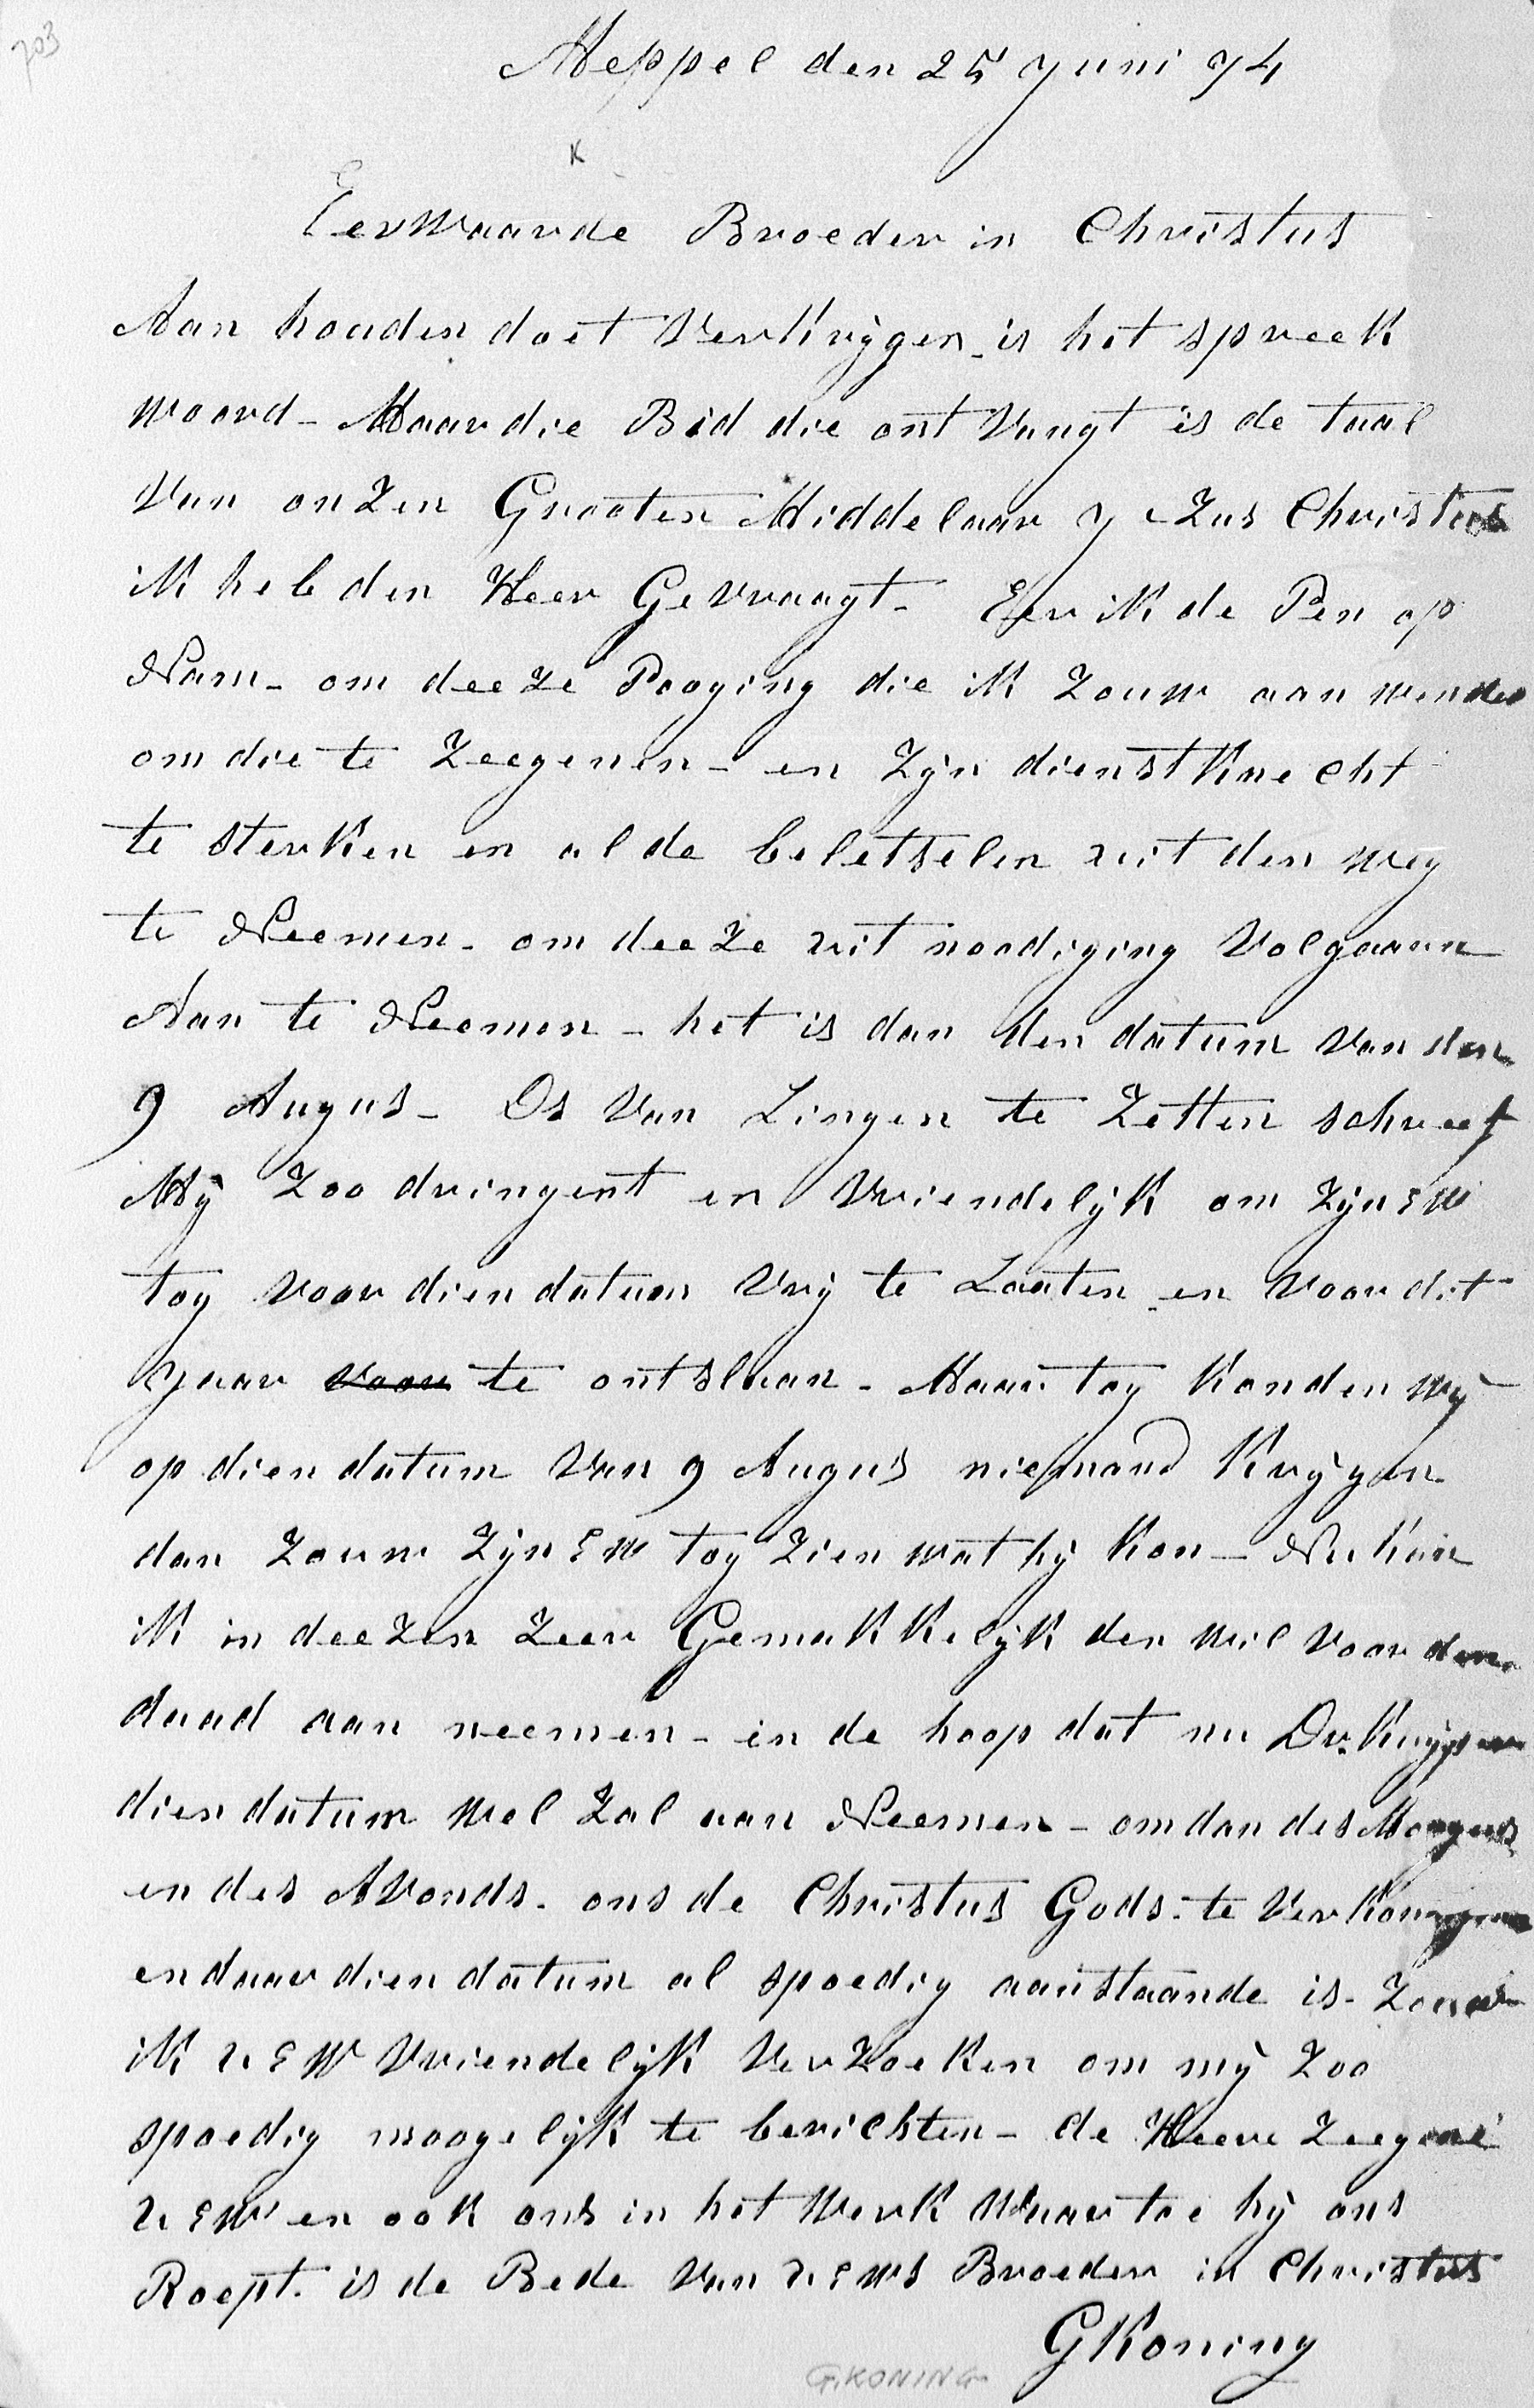 703
Meppel den 25 Juni 74
x
Eerwaarde Broeder in Christus
Aan houden doet Verkrijgen is het spreek
woord - Maar die Bid die ont Vangt is de taal
Van on Zen Grooten Middelaar Je Zus Christus
ik heb den Heer Gevraagt - Eer ik de Pen op
Nam - om deeze Pooging die ik Zouw aan wenden
om die te Zeegenen - en Zijn dienstknecht
te sterken en al de beletselen uit den weg
te Neemen - om deeze uit noodiging Volgaarn
Aan te Neemen - het is dan den datum van den
9 Augus - Ds Van Lingen te Zetten schreef
Mij Zoo dringent en Vriendelijk om Zijn EW
tog voor dien datum Vrij te Laaten en voor dit
Jaar voor te ontslaan - Maar tog konden wij
op dien datum Van 9 Augus niemand Krijgen
dan Zouw Zijn EW tog Zien wat hij kon - Nu kan
ik in deezen Zeer Gemakkelijk den wil voor den
daad aan neemen - in de hoop dat nu Dr. Kuijper
dien datum wel Zal aan Neemen - om dan des Morgens
en des Avonds - ons de Christus Gods - te Ver
en daar dien datum al spoedig aanstaande is - Zouw
ik u EW Vriendelijk Verzoeken om mij Zoo
spoedig moogelijk te berichten - de Heere Zeegene
u EW en ook ons in het Werk Waartoe hij ons
Roept. is de Bede Van u EWs Broeder in Christus
GKoning
G.KONING